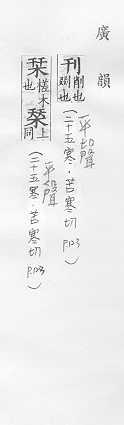 廣韻
刊 削也剟也
平聲
(二十五寒·苦寒切 P123)
栞 槎木也 𣓁 上同
平聲
(二十五寒·苦寒切 P123)